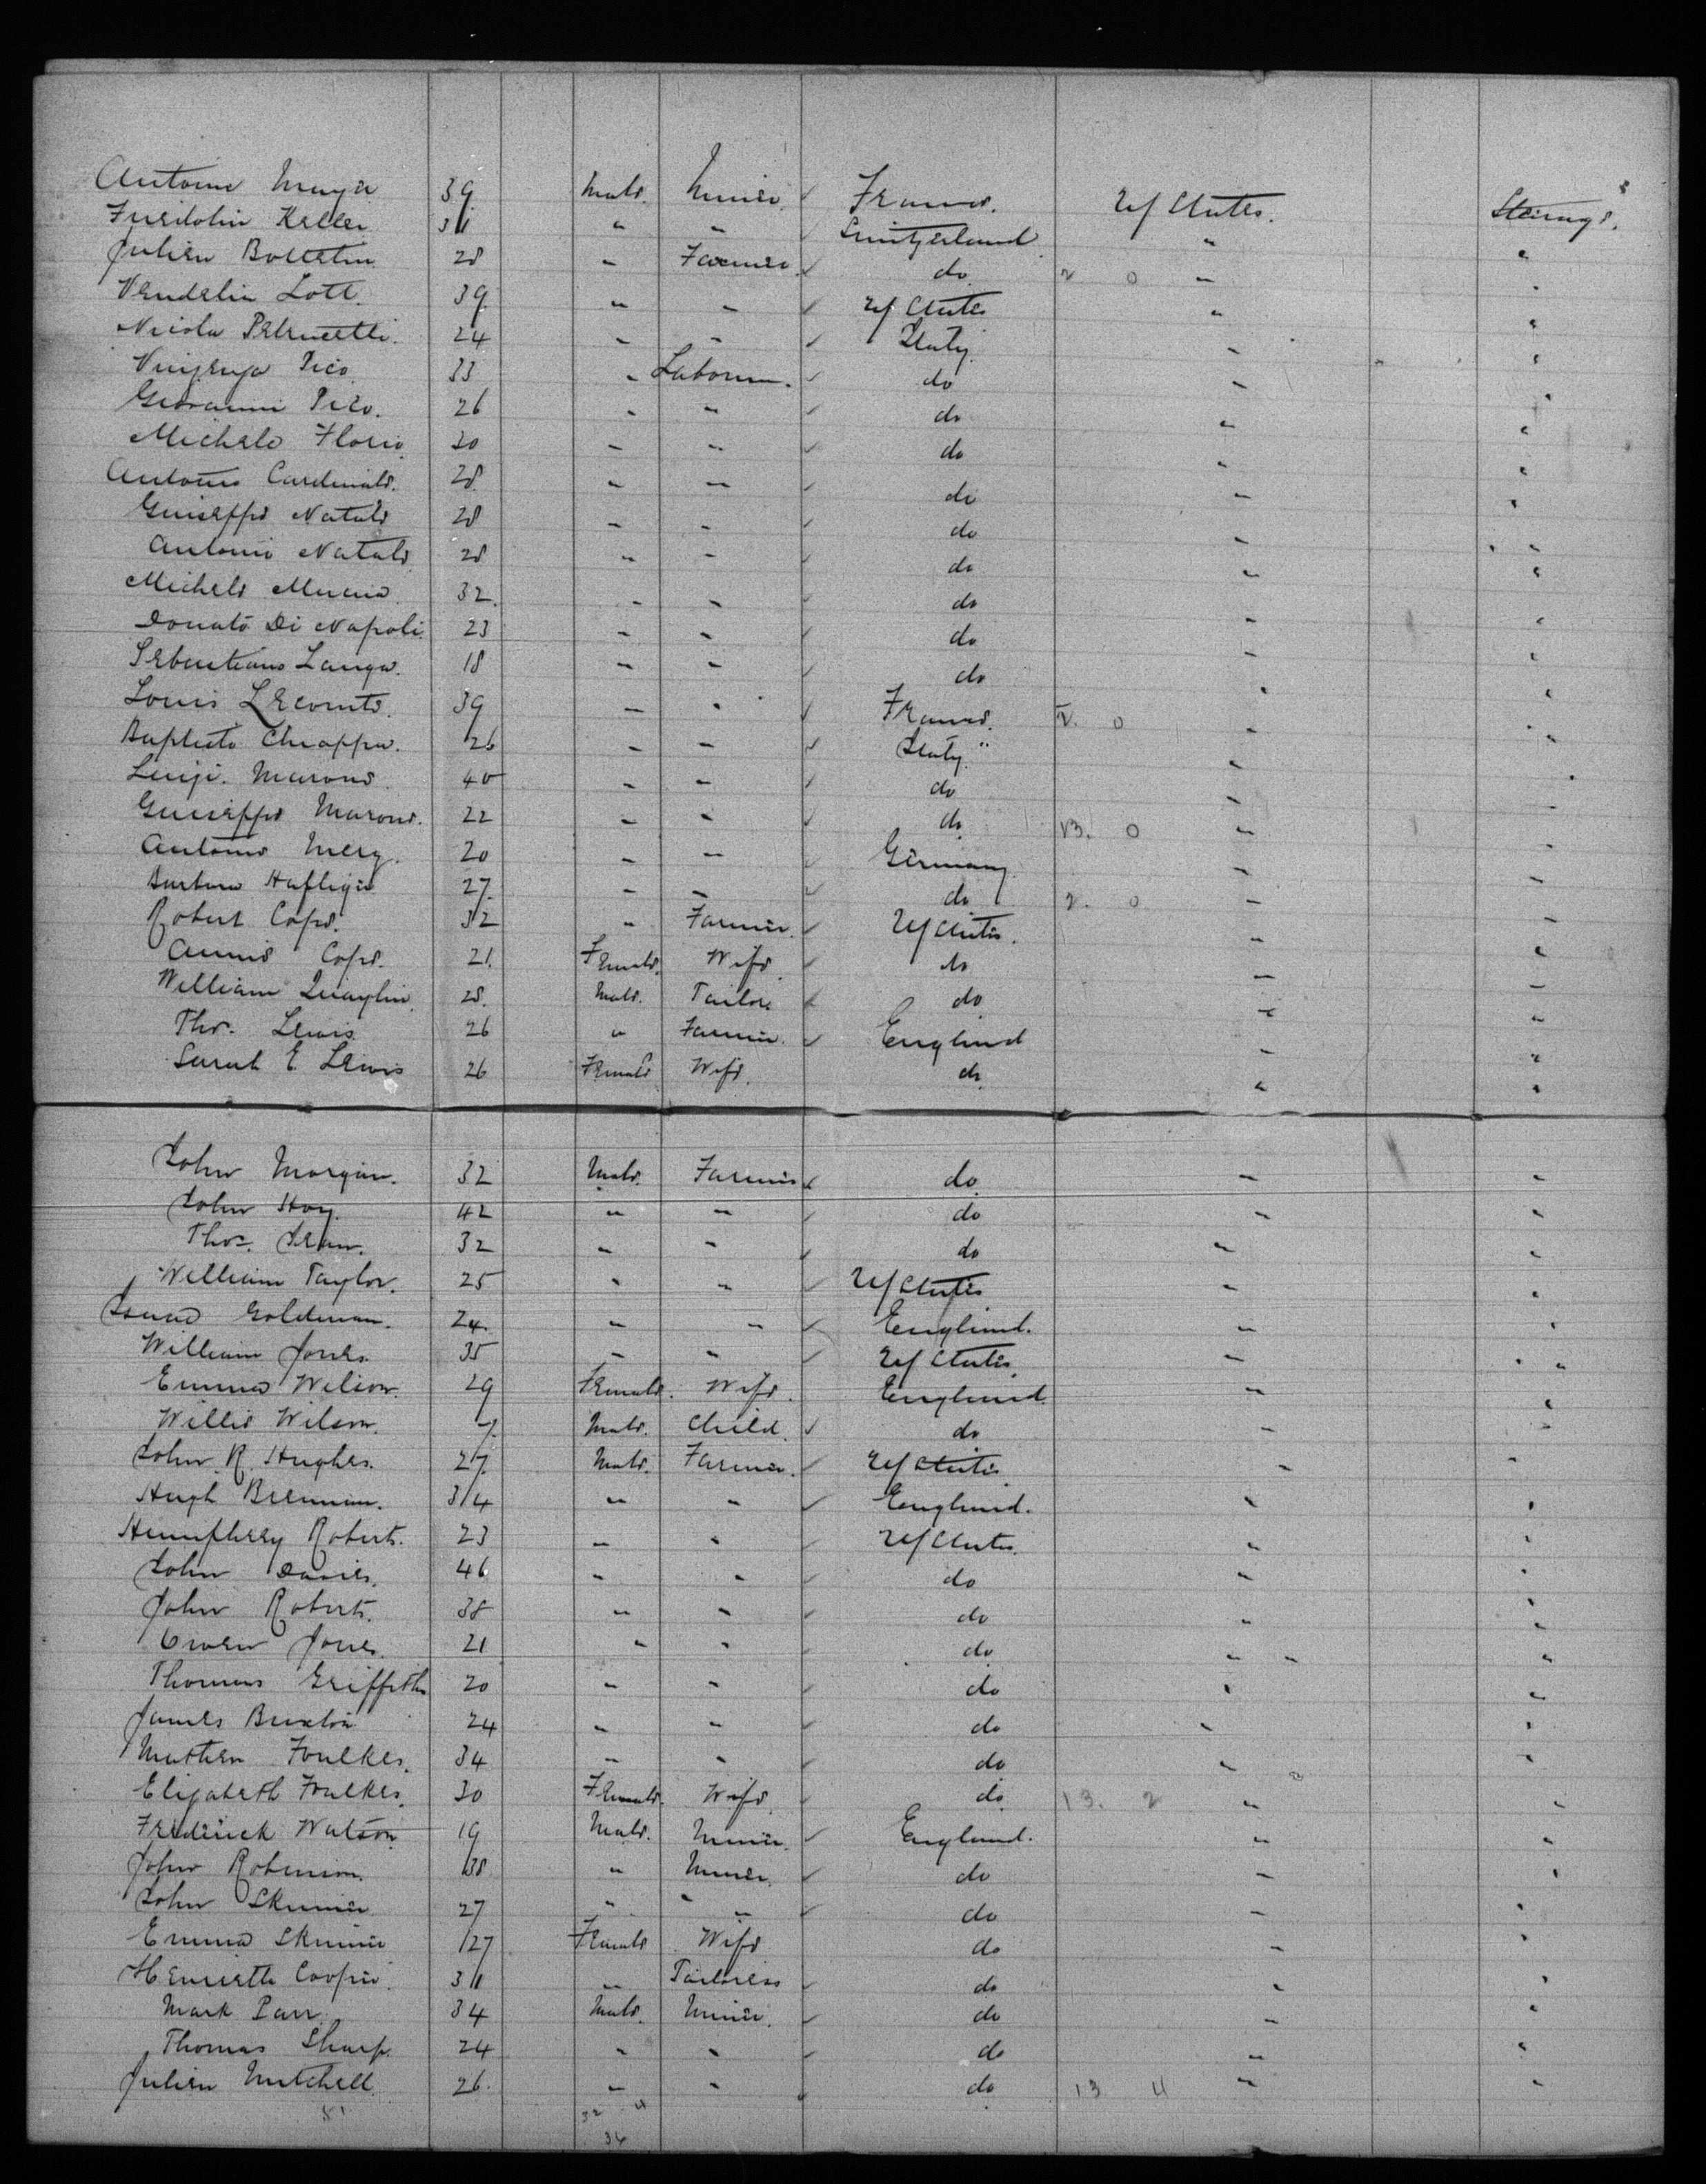 Antoine Mayer 39 Male. Miner. ✓ France. U/States. Steerage.
Fridolin Keller 31 " " ✓ Switzerland " "
Julien 28 " Farmer ✓ do 2 0 " "
Vendelin Lott. 39 " " ✓ U/States " "
Nicola Petrucelli. 24 " " ✓ Italy. " "
Pico 33 " Labourer. ✓ do " "
Giovanni Pico. 26 " " ✓ do " "
Michele Florio 30 " " ✓ do " "
Antonio Cardinale. 28 " " ✓ do " "
Guiseppe Natale 28 " " ✓ do " "
Antonio Natale 28 " " ✓ do " "
Michele 32. " " ✓ do " "
Donato Di Napoli. 23 " " ✓ do " "
Sebastiano Langa. 18 " " ✓ do " "
Louis Lecomte. 39 " " ✓ France. 0 " "
Baptista Chiappa. 26 " " ✓ Italy " "
Luigi. Marone 40 " " ✓ do " "
Guiseppe Marone. 22 " " ✓ do 13. 0 " "
Antoine Mery. 20 " " ✓ Germany " "
Hafliger 27. " " ✓ do 2. 0 " "
Robert Cope. 32 " Farmer. ✓ U/States. " "
Annie Cope. 21. Female. Wife ✓ do " "
William 28. Male. Tailor ✓ do " "
Thos. Lewis 26 " Farmer. ✓ England " "
Sarah E Lewis 26 Female Wife. do " "
John Morgan. 32 Male. Farmer ✓ do " "
John Hoy. 42 " " ✓ do " "
Thos. 32 " " ✓ do " "
William Taylor. 25 " " ✓ U/States " "
Isaac Goldman. 24. " " ✓ England. " "
William Jones. 35 " " ✓ U/States " "
Emma Wilson. 29 Female. Wife. England " "
Willie Wilson. 7. Male. Child. ✓ do " "
John R Hughes. 27. Male. Farmer. ✓ U/States " "
Hugh Brennan. 34 " " ✓ England. " "
Humphrey Roberts. 23 " " ✓ U/States. " "
John Davies. 46 " " ✓ do " "
John Roberts. 38 " " ✓ do " "
Owen Jones 21 " " ✓ do " "
Thomas Griffiths 20 " " ✓ do " "
James Buxton 24 " " ✓ do " "
Mathew Foulkes. 34 " " ✓ do " "
Elizabeth Foulkes. 30 Female. Wife do 13. 2 " "
Frederick Watson 19 Male. Miner. ✓ England. " "
John Robinson. 38 " Miner. ✓ do " "
John Skinner 27 " " ✓ do " "
Emma Skinner 27 Female Wife do " "
Henrietta Cooper. 31 " Tailoress ✓ do " "
Mark Parr. 34 Male. Miner. ✓ do " "
Thomas Sharp. 24 " " ✓ do " "
Julien Mitchell 26. " " ✓ do 13 4 " "
51 32 4
36